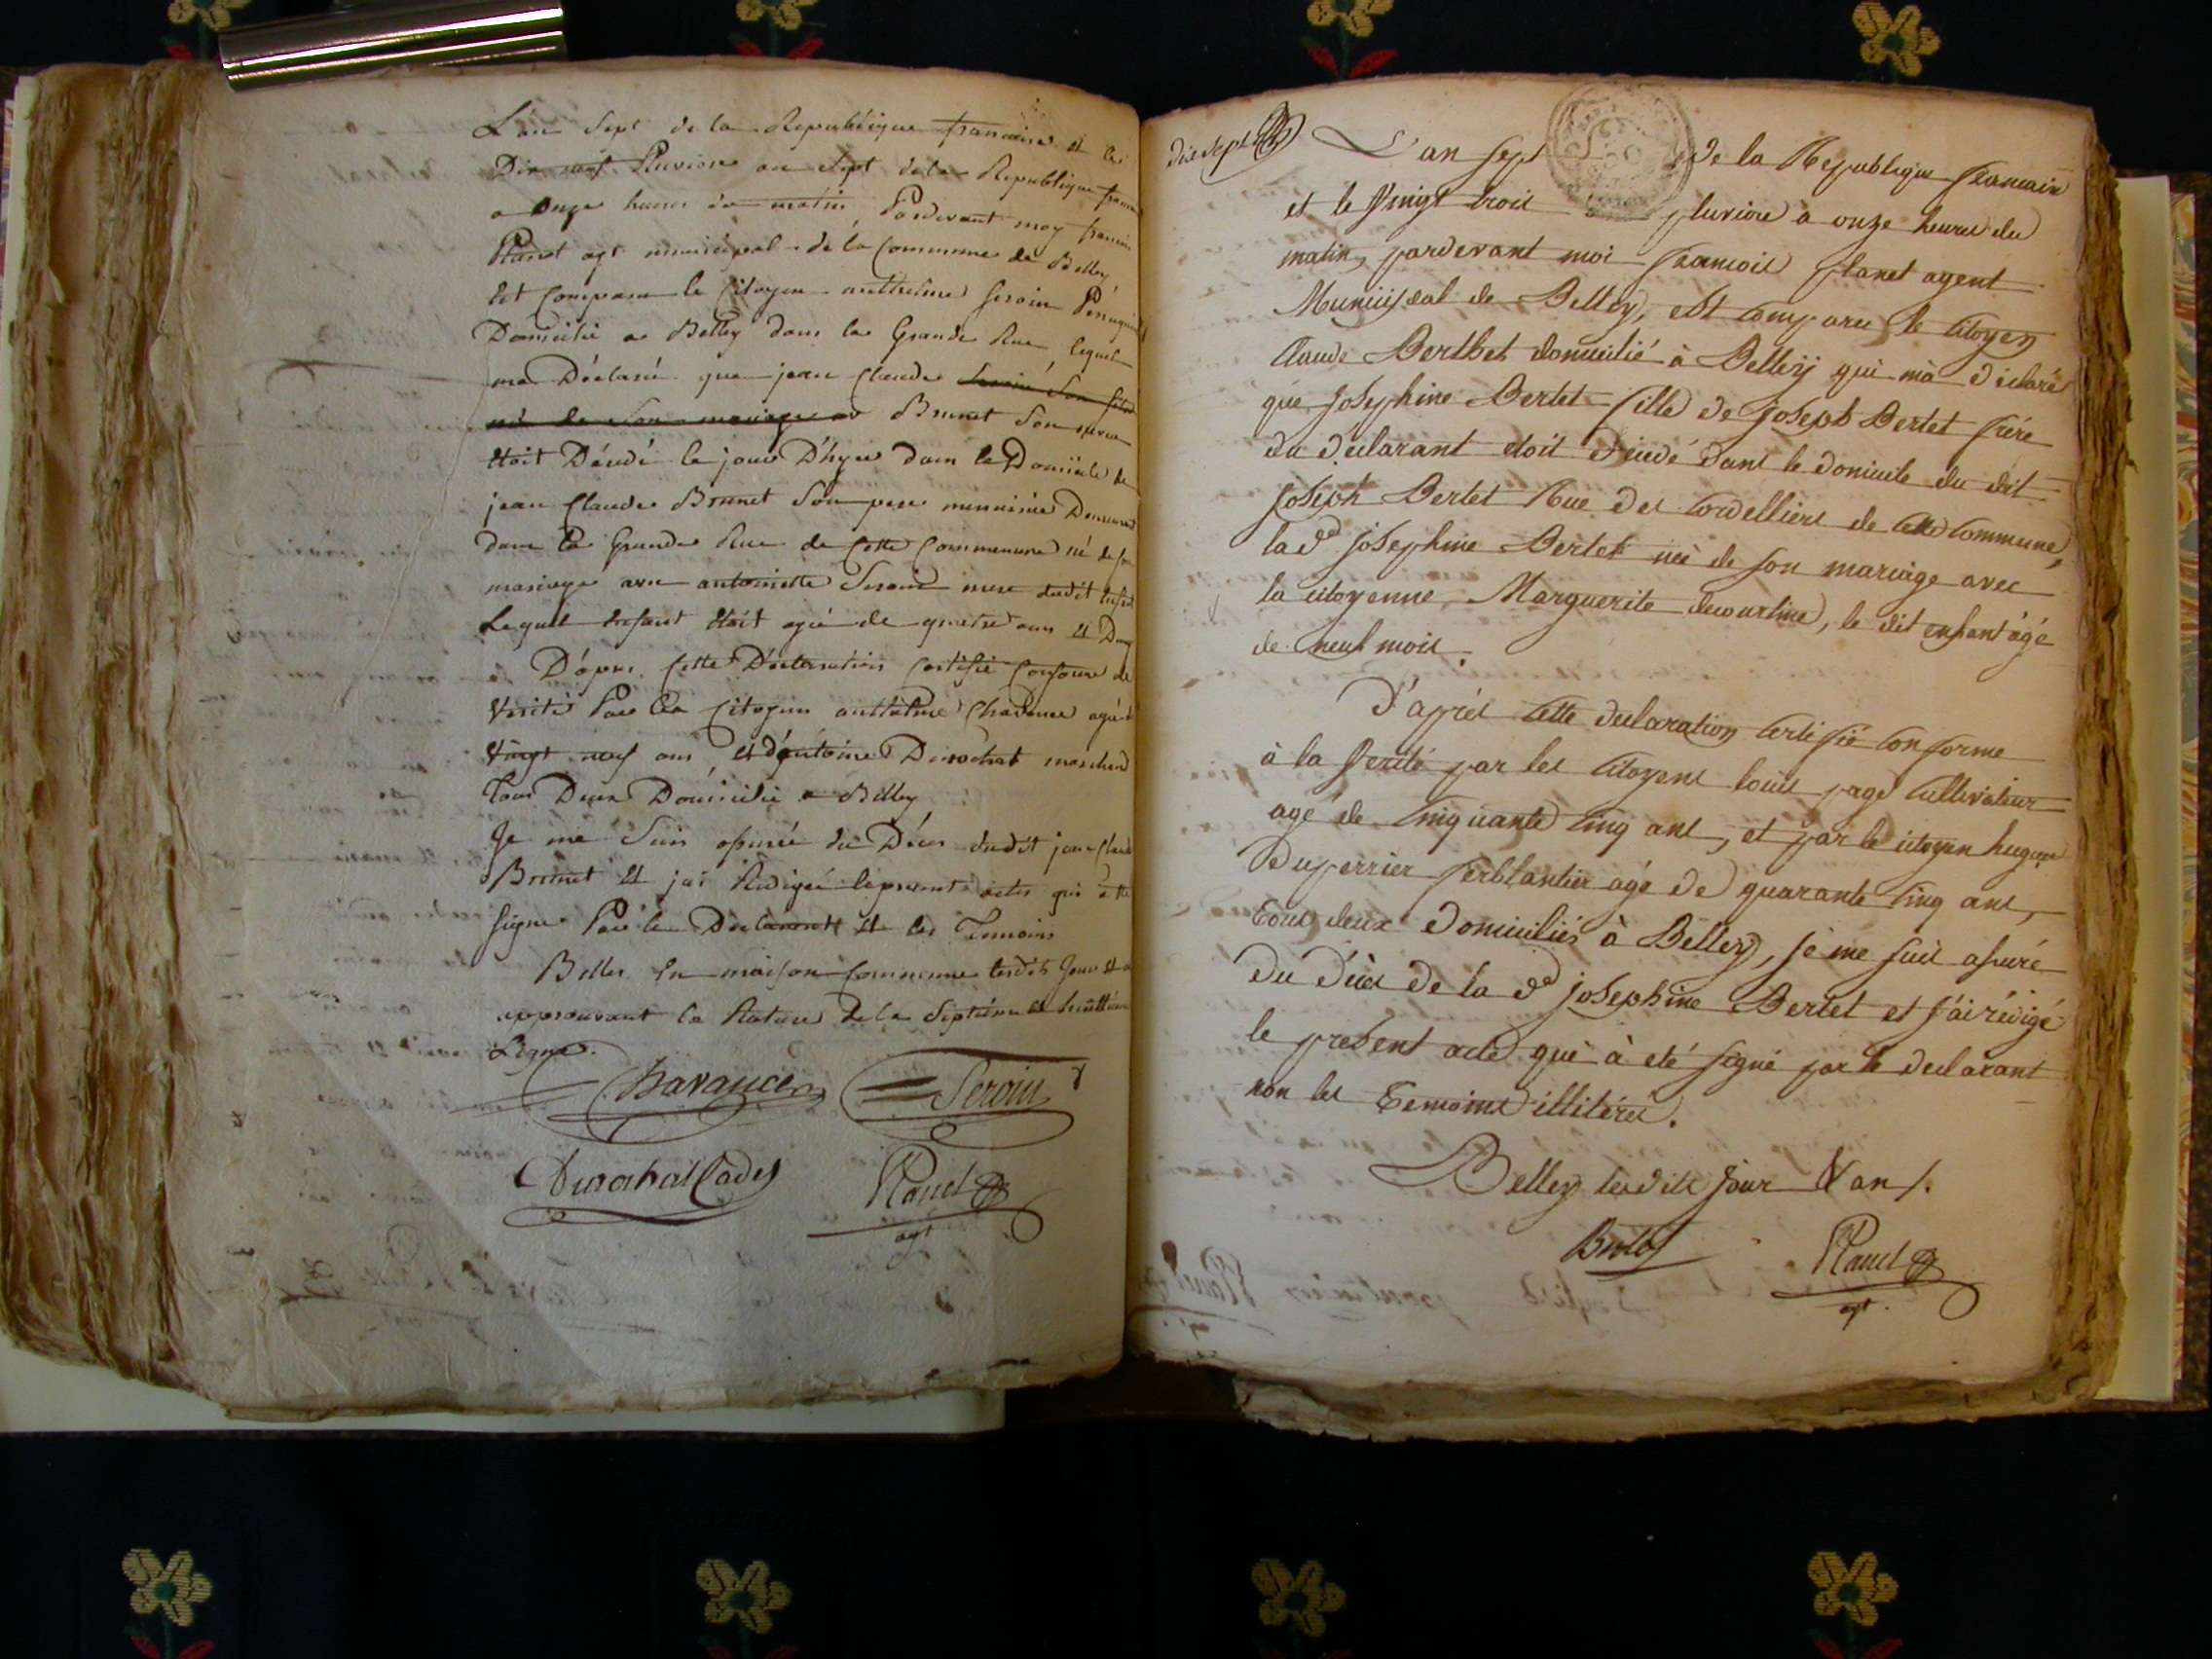 L'an Sept de la Republique francaise et le
Dix neuf Pluviose an Sept de la Republique
a Onze heures du matin, Pardevant moy francois
Planet agt municipal de la Commune de Belley
Est Comparu le Citoyen anthelme Seroin
Domicilié a Belley dans la Grande Rue, lequel
ma Déclaré que jean Claude Seroin Son fils
né de Son mariage av Brunet Son neveu
étoit Décédé le jour D'hyer dans le Domicile de
jean Claude Brunet Son pere menuisier Demeurant
dans la Grande Rue de Cette Commune né de son
mariage avec antoinette Seroin mere dudit enfant
Lequel enfant étoit agé de quatre ans et Demy
D'apres Cette Déclaration Certifié Conforme de
Vérité Par les Citoyens anthelme Chavance agé de
Vingt neuf ans, et d'antoine Durochat marchand
Tous Deux Domicilié a Belley
Je me Suis assurée du Déces dudit jean Claude
Brunet et jai Rédigée le present acte qui a été
Signe Par le Declarant et les Temoins
Belley En maison Commune lesdits Jour et an
approuvant la Rature de la Septiéme et huittiéme
Ligne.
Chavance Seroin
Durochat Cadet Planet
agt
dix sept L'an Sept de la Republique francaise
et le Vingt trois pluviose à onze heures du
matin, pardevant moi francois planet agent
Municipal de Belley, est comparu le citoyen
Claude Berthet domicilié à Belley qui m'à déclaré
que Josephine Bertet fille de joseph Bertet frére
du déclarant étoit décédé dans le domicile du dit
joseph Bertet Rue des Cordelliers de cette commune,
la de josephine Bertet née de son mariage avec
la citoyenne Marguerite decourtine, le dit enfant âgé
de neuf mois.
D'aprés cette declaration certifié conforme
à la Verité par les citoyens louis page cultivateur
agé de Cinquante cinq ans, et par le citoyen hugues
Duperrier ferblantier agé de quarante cinq ans,
tous deux domiciliés à Belley, je me suis assuré
du décès de la de josephine Bertet et j'ai rédigé
le present acte qui à eté signé par le declarant
non les temoins illitérés.
Belley lesdits jour & an /.
Bertet Planet
agt